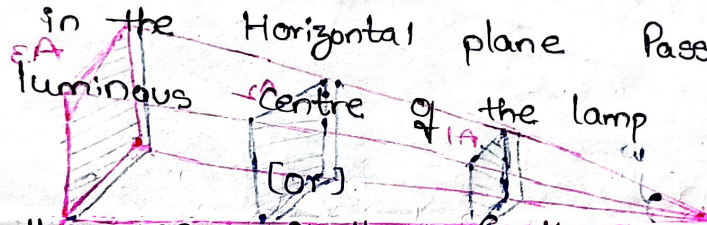 in the Horizontal plane Pass
luminous Centre of the lamp
1A
[or]